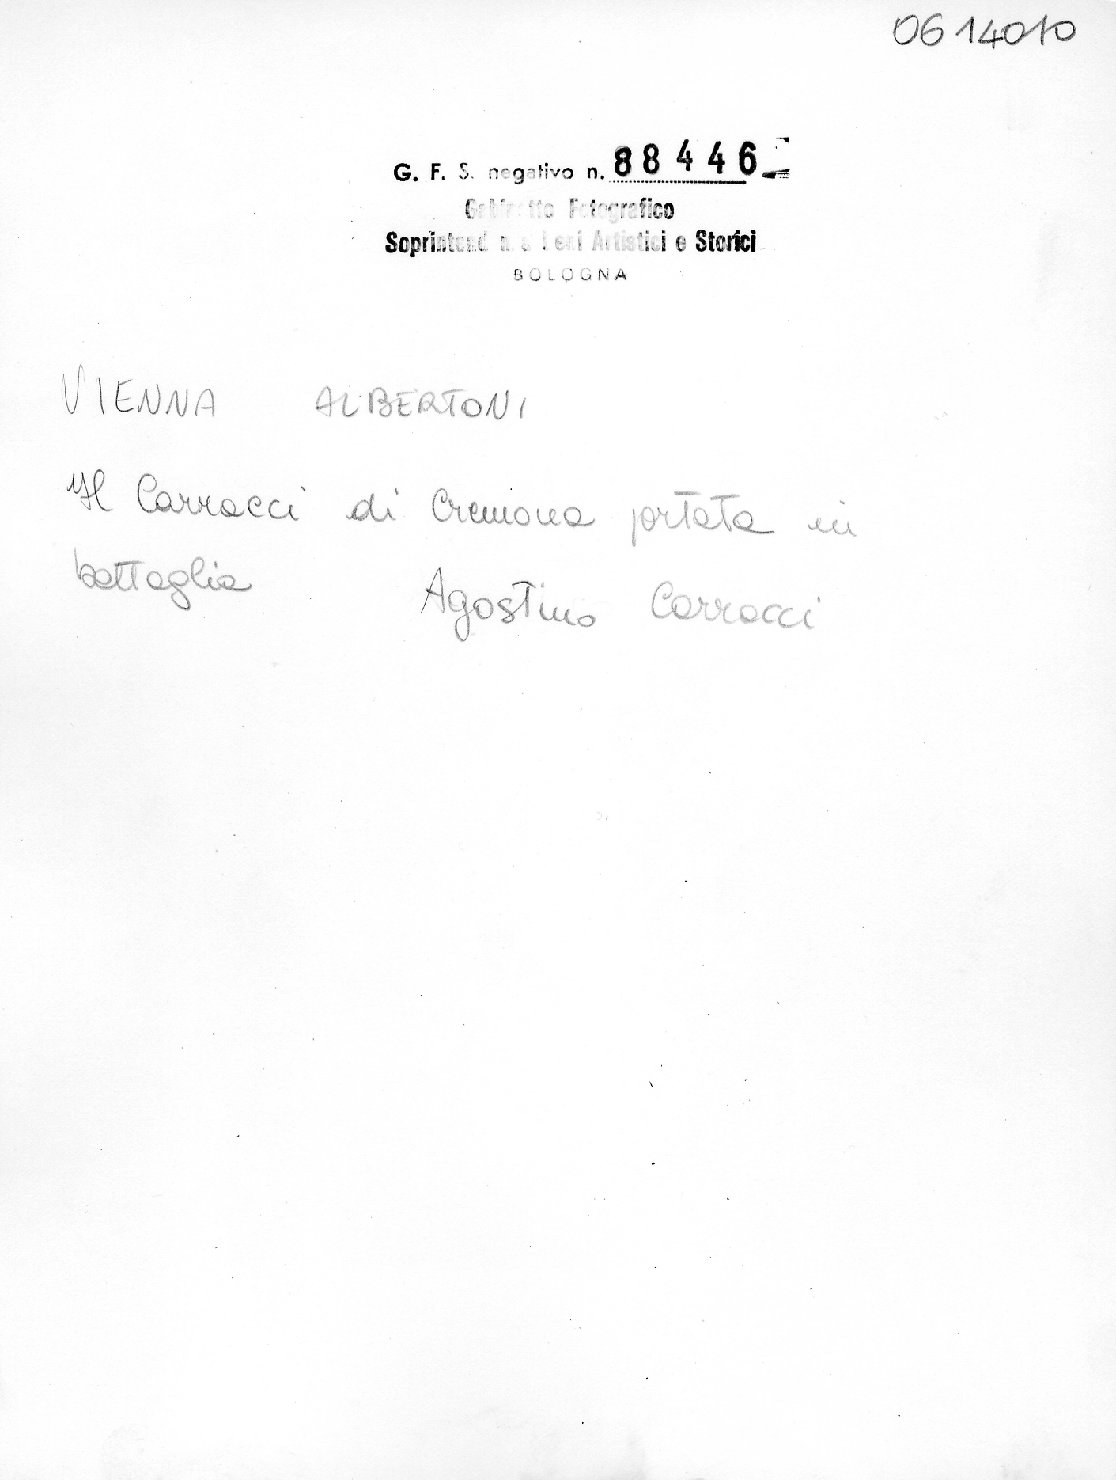 0614010
G. F. S. negativo n. 88446
Gabinetto Fotografico
Soprintend. a. e Beni Artistici e Storici
BOLOGNA
VIENNA ALBERTONI
Il Carracci di Cremona portata in
battaglia Agostino Carracci